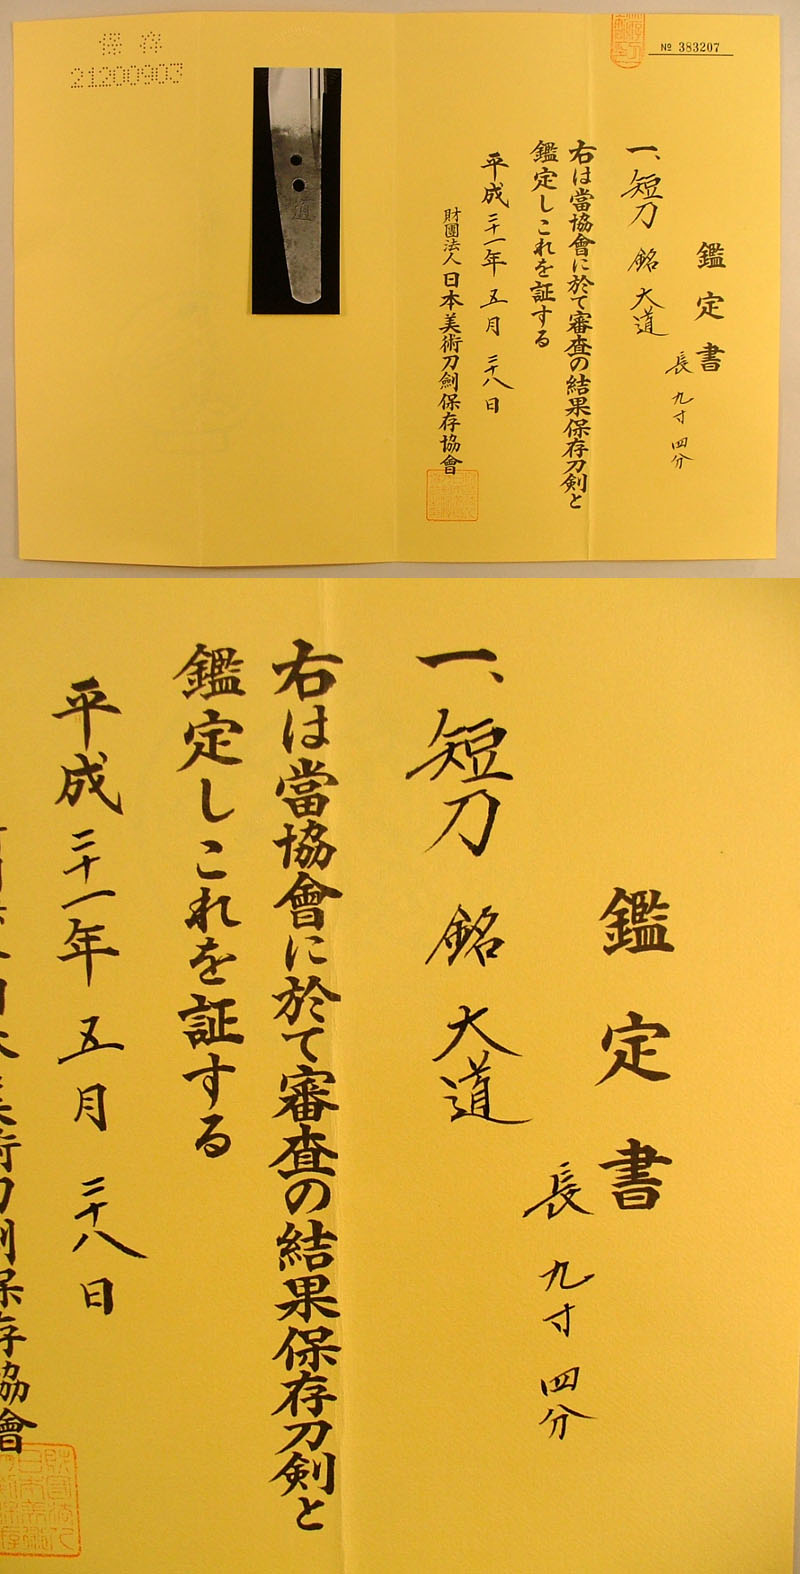 保存
21200903
№ 383207
鑑定書
一、短刀 銘 大道
長 九寸四分
右は當協會に於て審査の結果保存刀剣と
鑑定しこれを証する
平成二十一年 五月 二十八日
財團法人日本美術刀劍保存協會
道
鑑定書
一、短刀 銘 大道
長 九寸四分
右は當協會に於て審査の結果保存刀剣と
鑑定しこれを証する
平成二十一年 五月 二十八日
美術刀劍保存協會